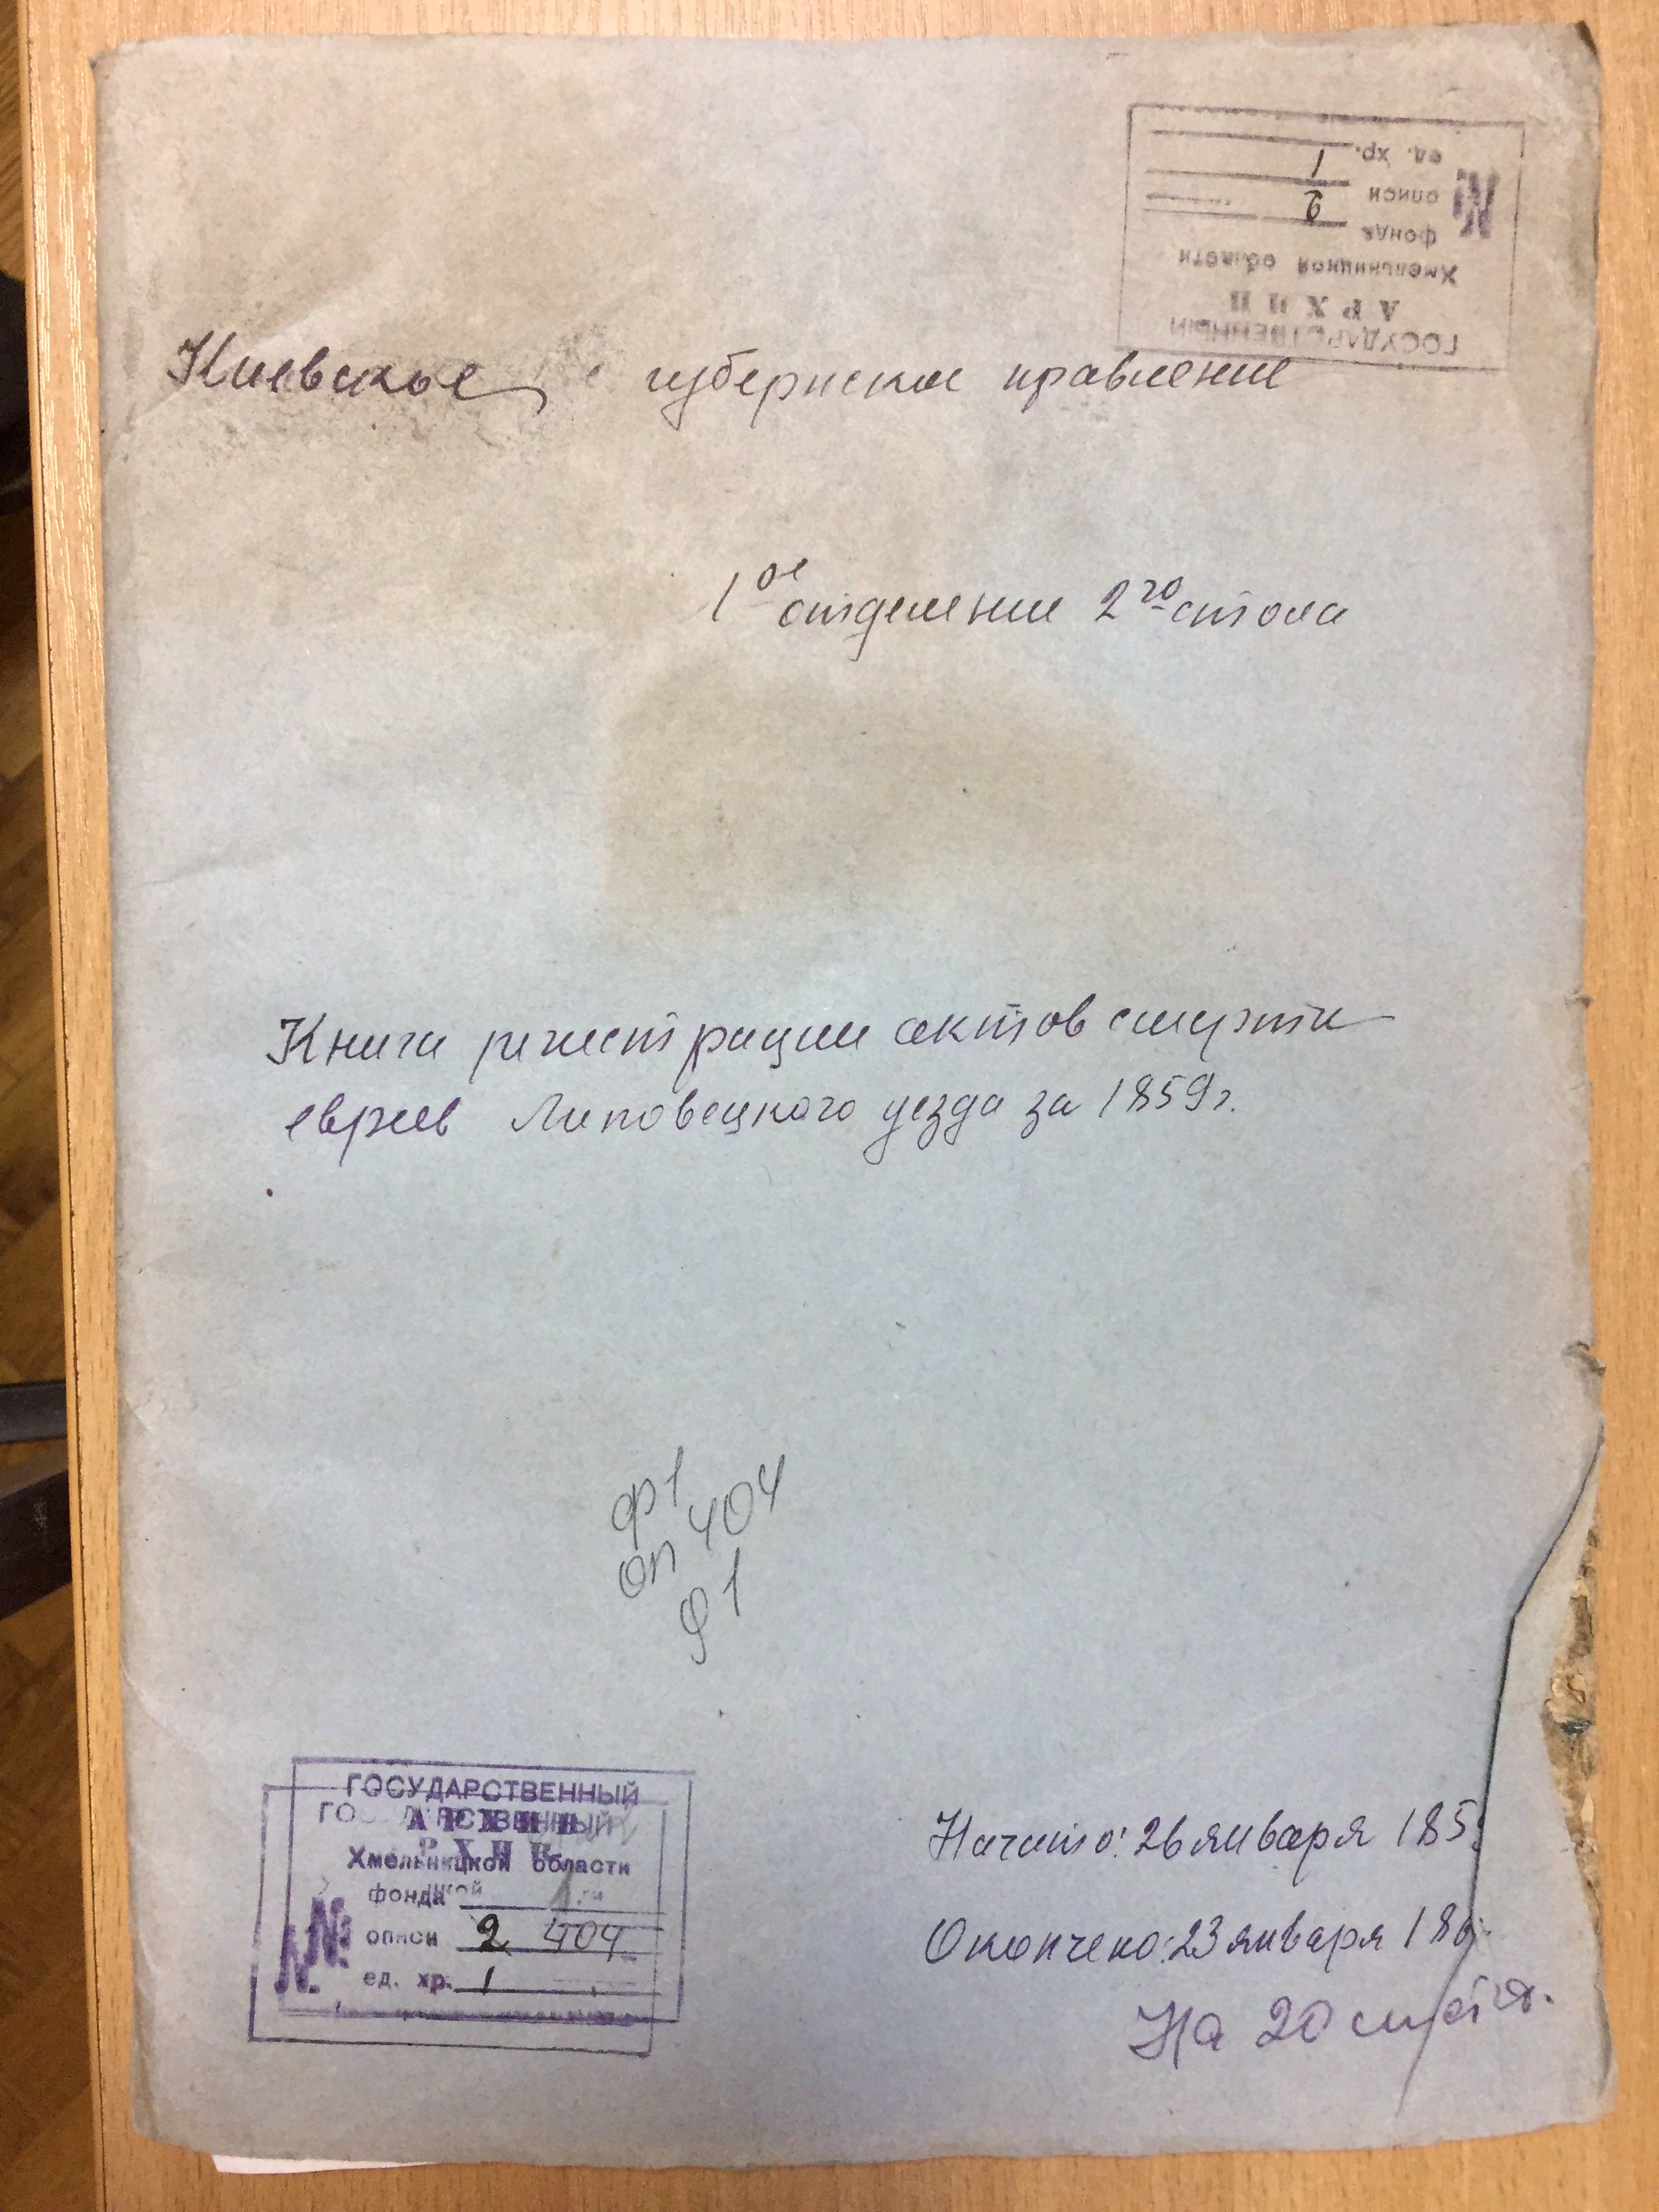 ГОСУДАРСТВЕННЫЙ
АРХИВ
Хмельницкой области
№
фонда
описи 2
ед. хр. 1
Киевское губернское правление
1ое отделение 2го стола
Книга регистрации актов смерти
евреев Липовецкого уезда за 1859г.
ф1
оп 404
д1
ГОСУДАРСТВЕННЫЙ
АРХИВ
Хмельницкой области
№
фонда 1
описи 2 404
ед. хр. 1
Начато: 26 января 185
Окончено: 23 января 186
На 20